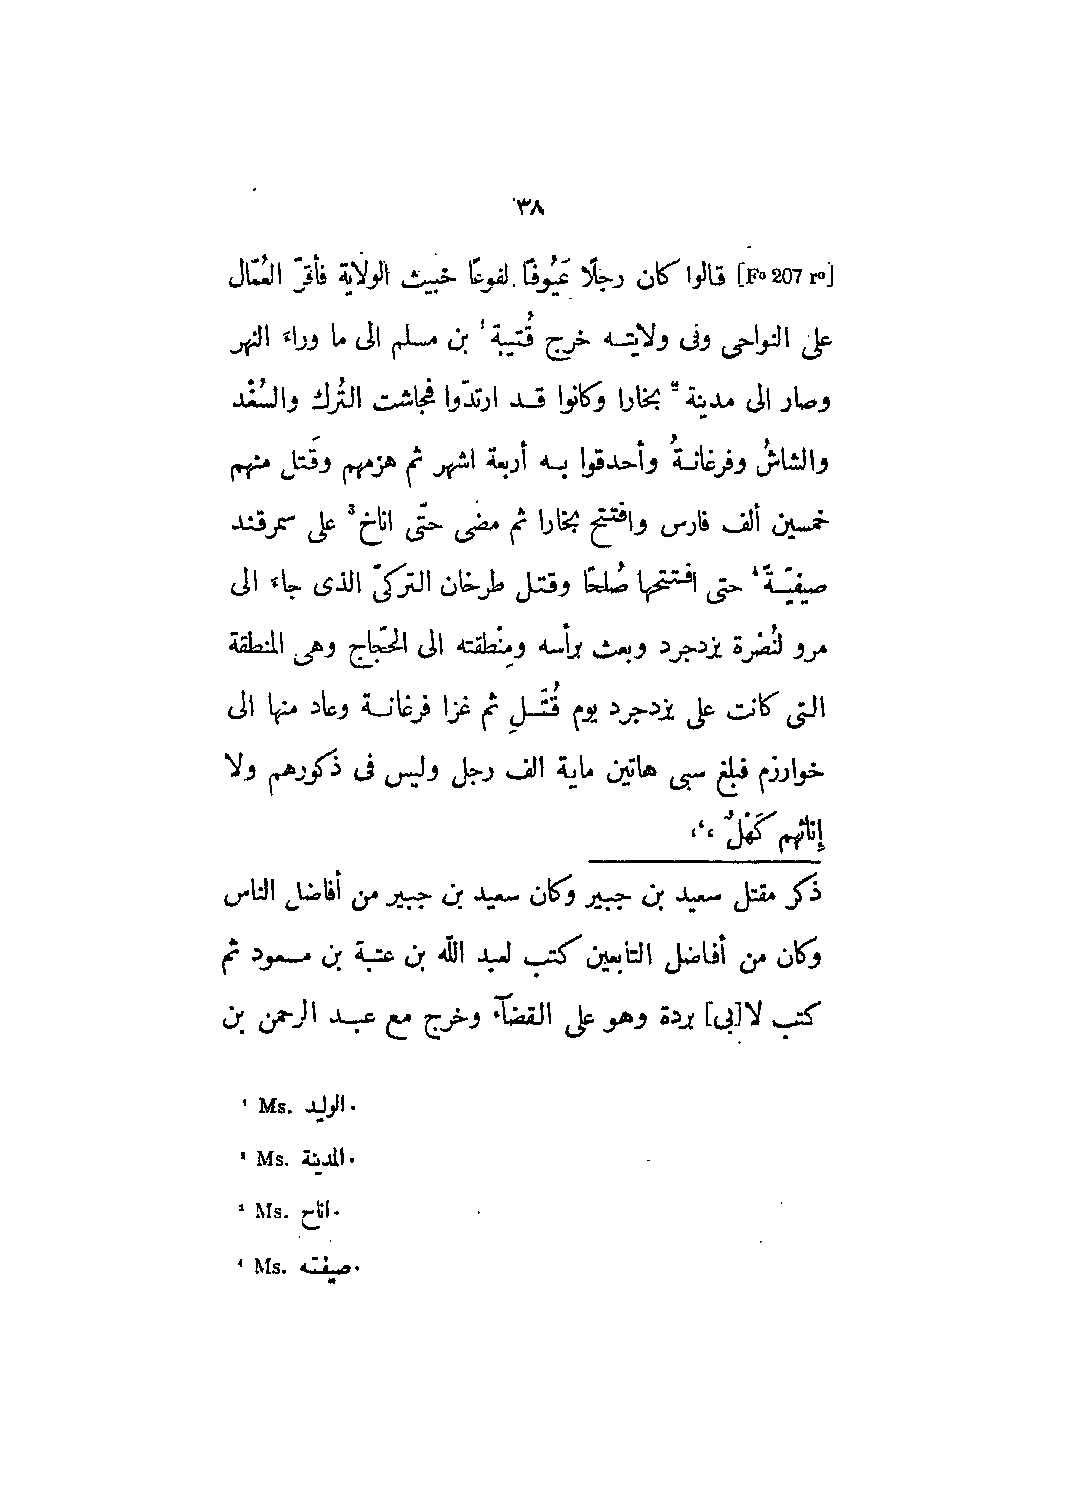 ٣٨
[Fº 207 rº] قالوا كان رجلًا عَيُوفًا لفوعًا خبيث الولاية فأقرّ العُمّال
على النواحى وفى ولايتـه خرج قُتيبة ¹ بن مسلم الى ما وراء النهر
وصار الى مدينة ² بخارا وكانوا قـد ارتدّوا فجاشت التُرك والسُغْد
والشاشُ وفرغانـةُ وأحدقوا بـه أربعة اشهر ثم هزمهم وقَتل منهم
خمسين ألف فارس وافتتح بخارا ثم مضى حتّى اناخ ³ على سمرقند
صيفيّـةً ⁴ حتى افتتحها صُلحًا وقتـل طرخان التركىّ الذى جاء الى
مرو لنُصْرة يزدجرد وبعث برأسه ومِنْطقته الى الحجّاج وهى المنطقة
التى كانت على يزدجرد يوم قُتِّـل ثم غزا فرغانـة وعاد منها الى
خوارزم فبلغ سبى هاتين ماية الف رجل وليس فى ذكورهم ولا
إناثهم كَهْلٌ ،،،
ذكر مقتل سعيد بن جبير وكان سعيد بن جبير من أفاضل الناس
وكان من أفاضل التابعين كتب لعبد اللّه بن عتبة بن مسعود ثم
كتب لا[بى] بردة وهو على القضآء وخرج مع عبـد الرحمن بن
¹ Ms. الوليد.
² Ms. المدينة.
³ Ms. اناح.
⁴ Ms. صيفته.